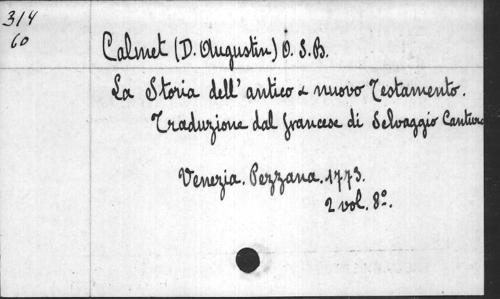 314
60
Calmet (D. Augustin) O. S. B.
La Storia dell' antico & nuovo Testamento.
Traduzione dal francese di Selvaggio
Venezia. Pezzana. 1773.
2 vol. 8º.